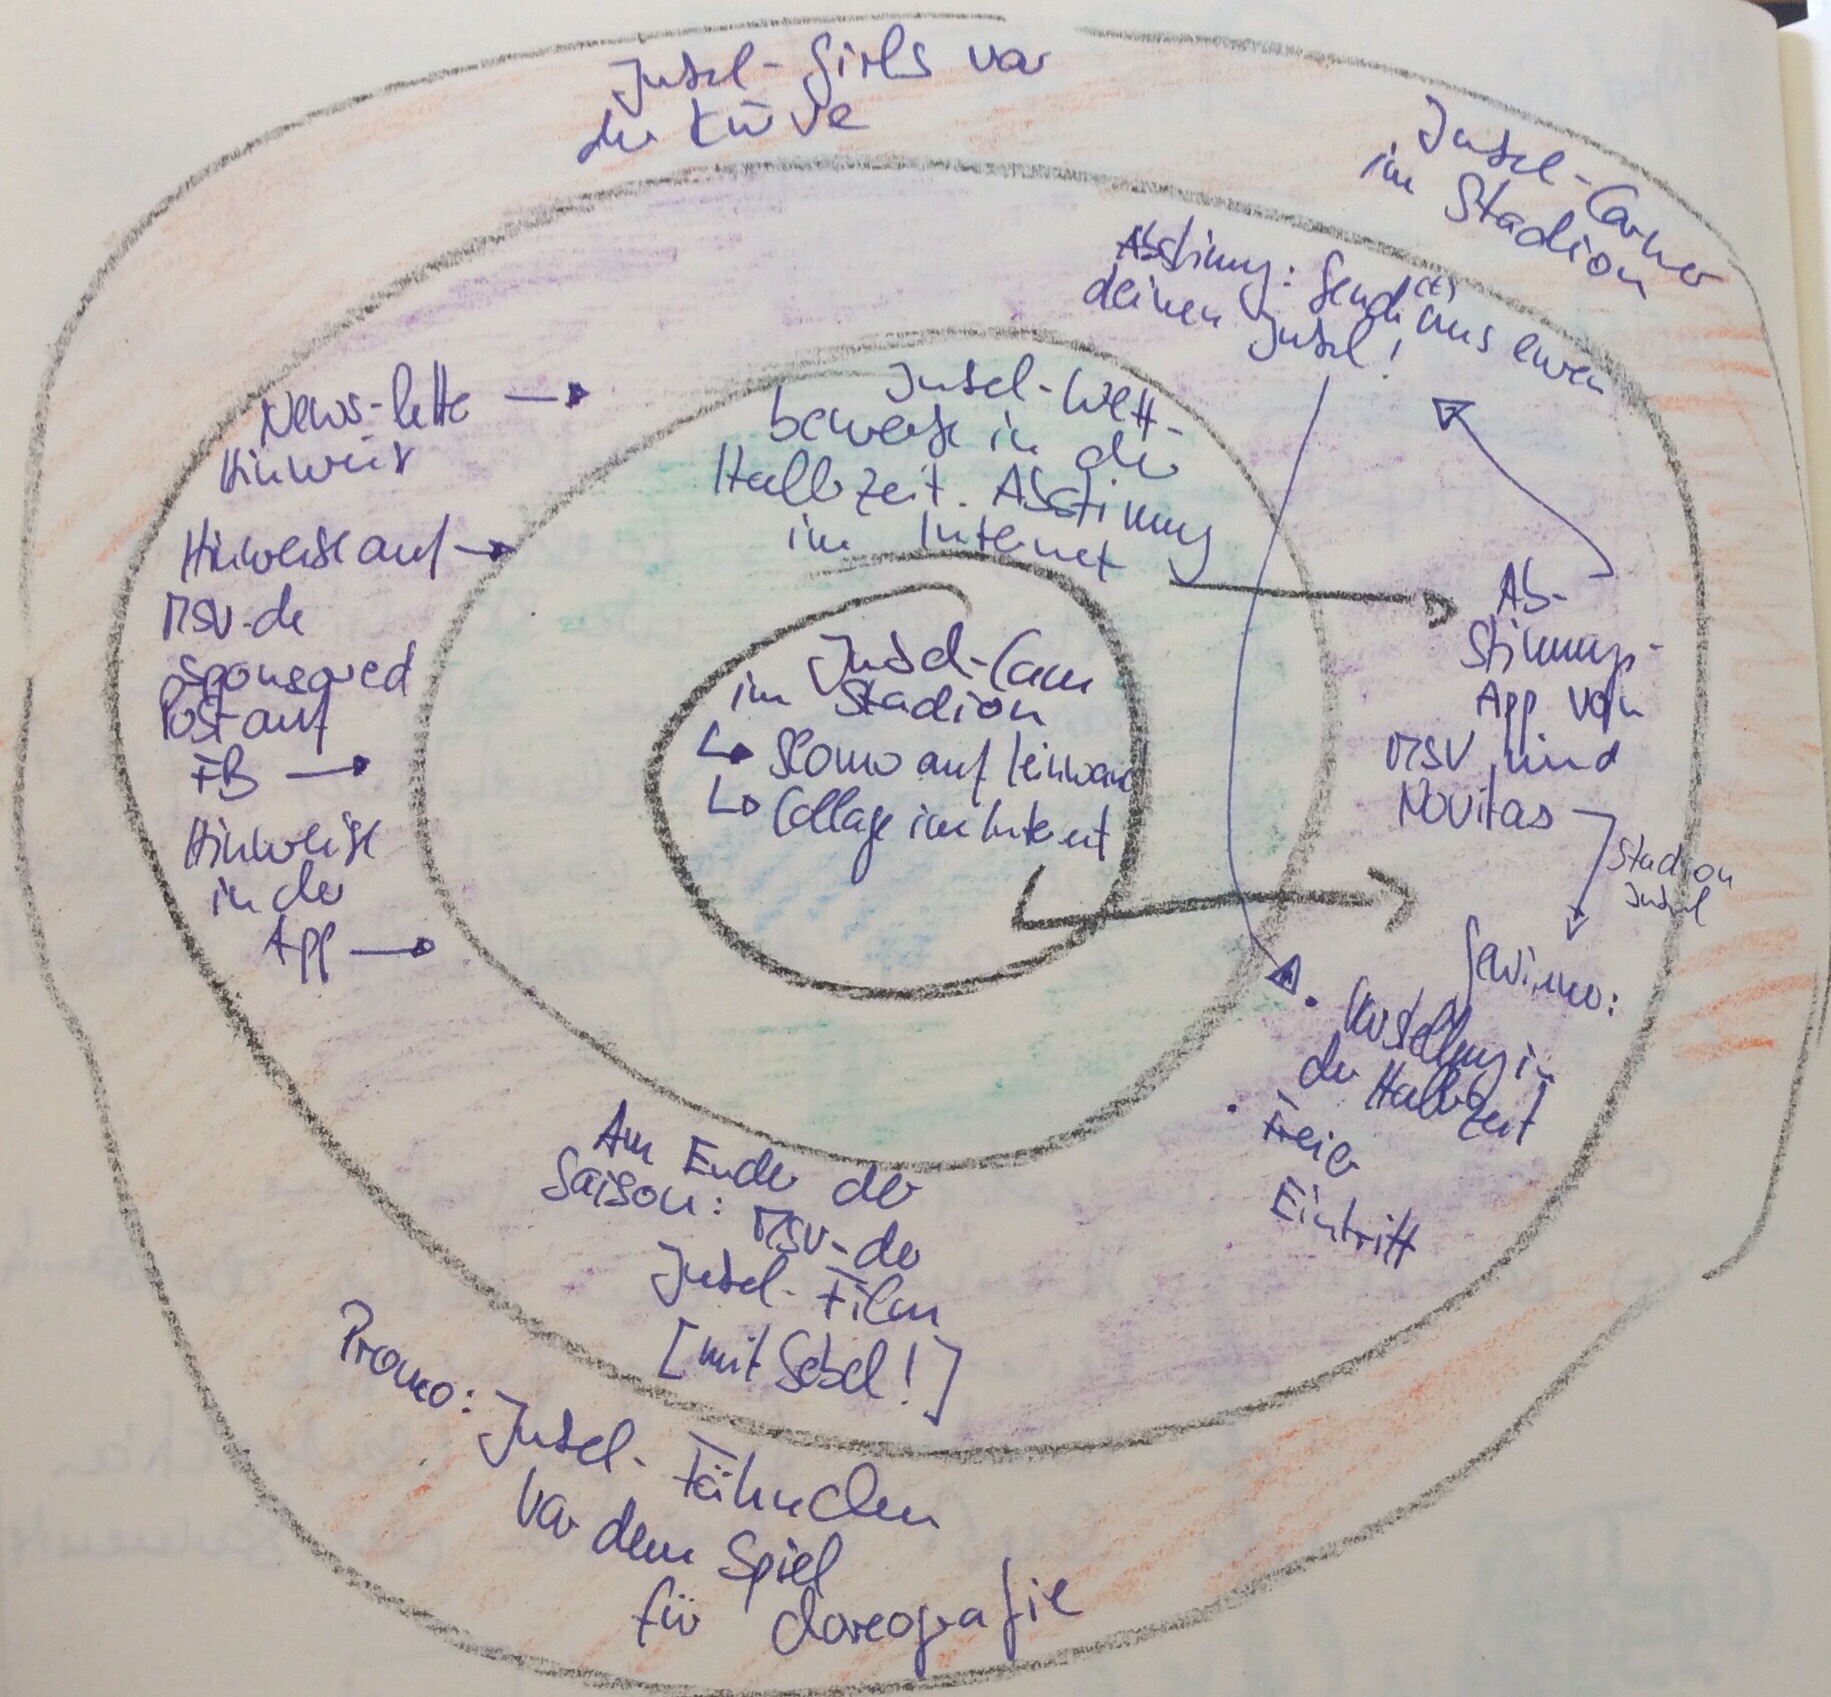 Jubel-Girls vor
der Kurve
Jubel-Corner
im Stadion
Abstimmg: Send(et) uns euren
deinen Jubel!
News-letter
Hinweis
Hinweise auf
MSV-de
Sponsored
Post auf
FB
Hinweise
in der
App
Jubel-Wett-
bewerb in der
Halbzeit. Abstimmung
im Internet
Jubel-Cam
im Stadion
Slomo auf Leinwand
Collage im Internet
Ab-
stimmungs-
App von
MSV und
Novitas
Stadion
Jubel
Gewinner:
• Vorstellung in
der Halbzeit
• Freier
Eintritt
Am Ende der
Saison: MSV-der
Jubel-Film
[mit Sebel!]
Promo: Jubel-Fähnchen
vor dem Spiel
für Choreografie